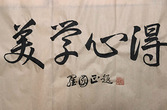 美学心得